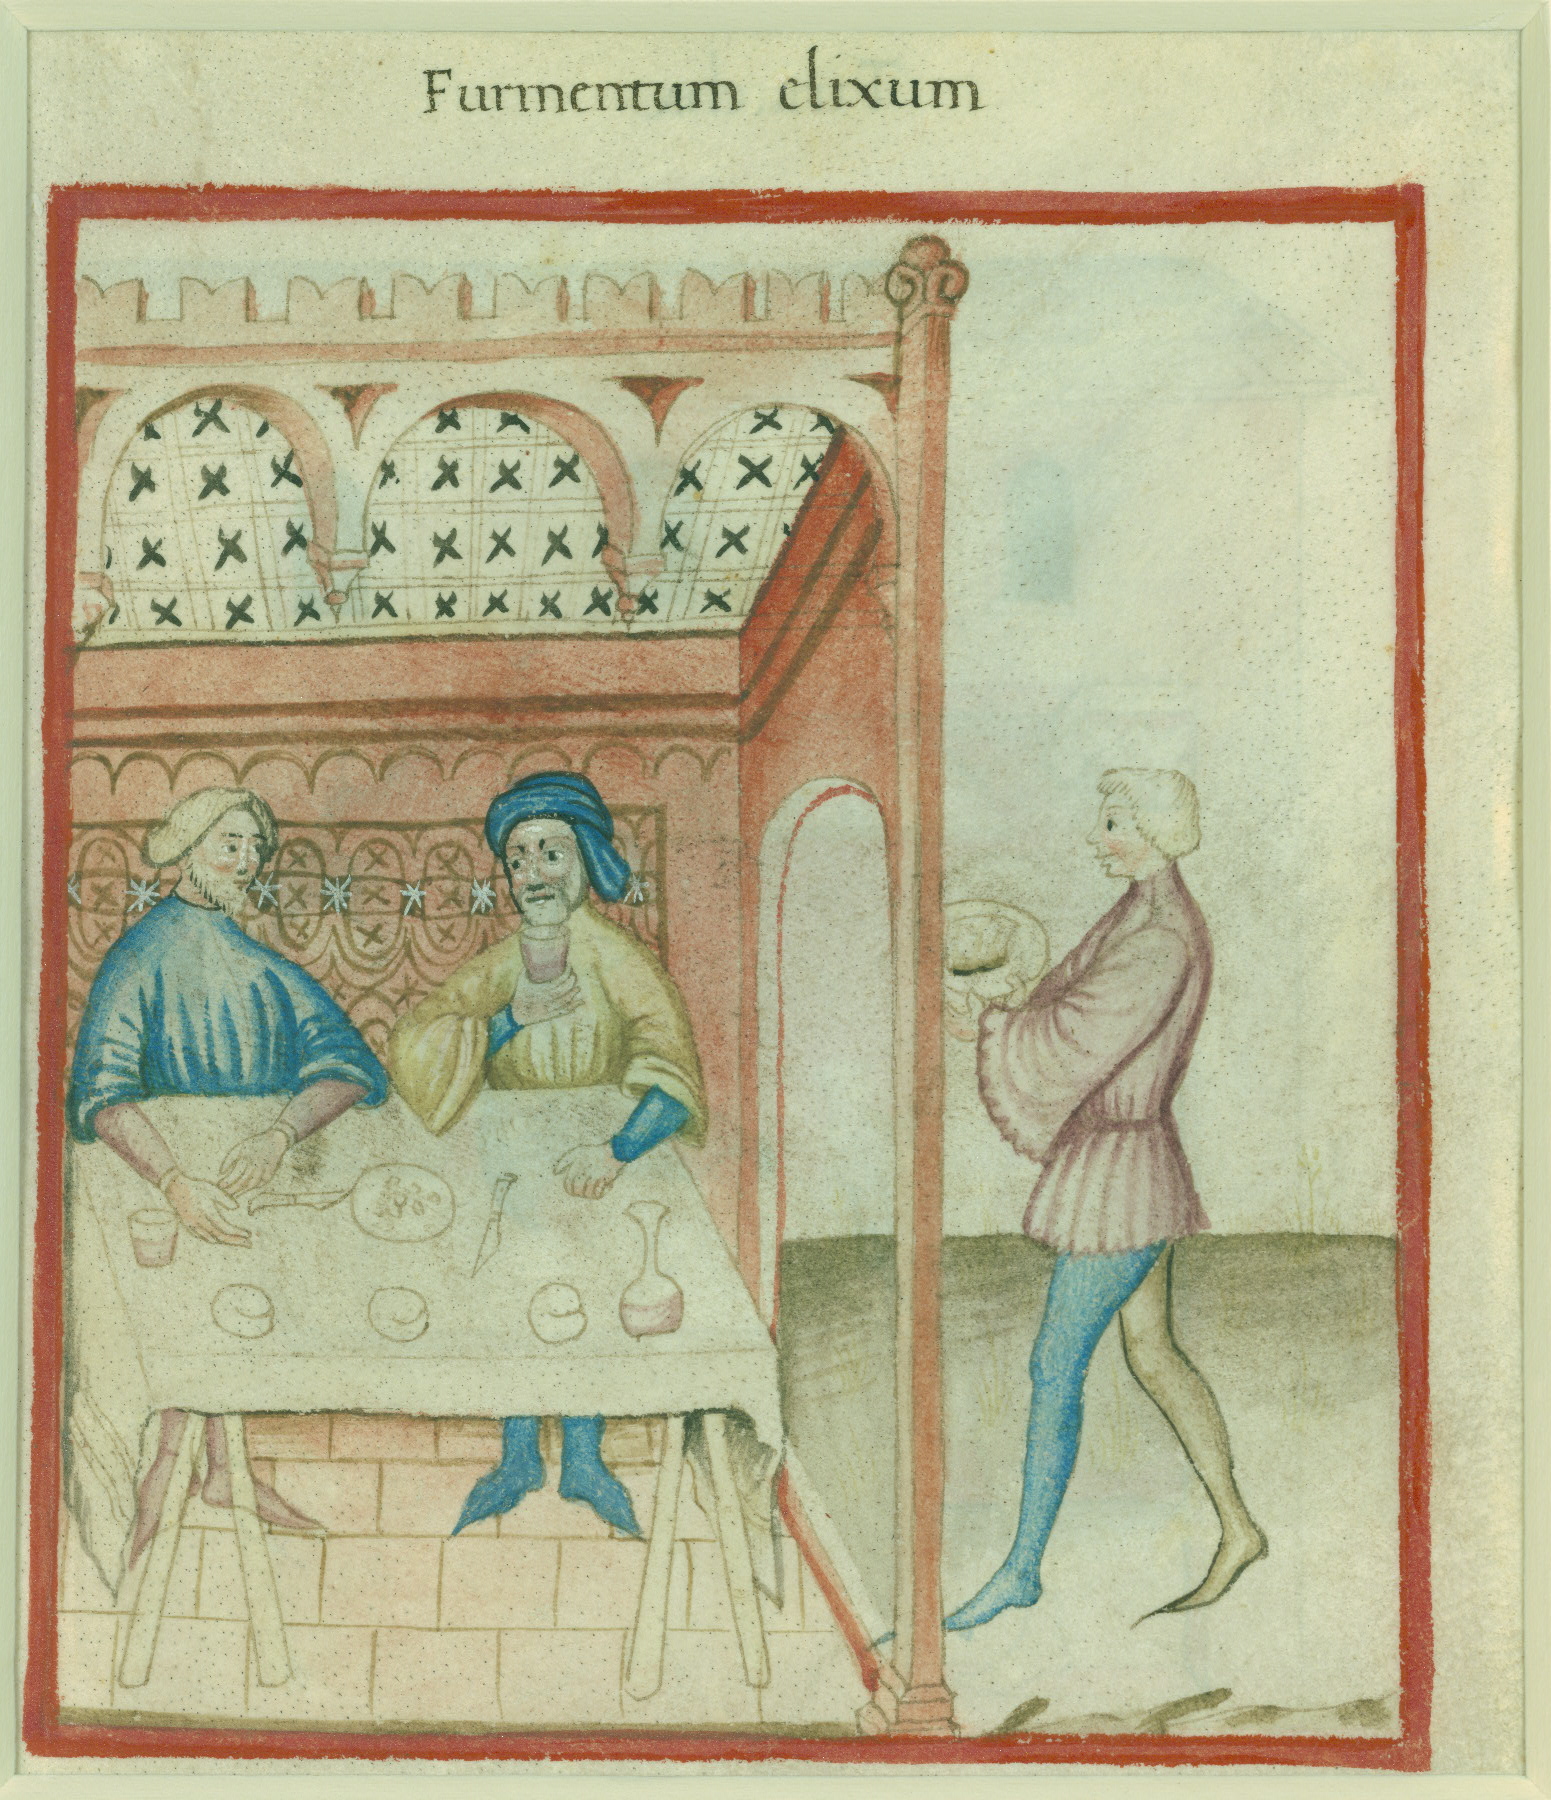 Furmentum elixum